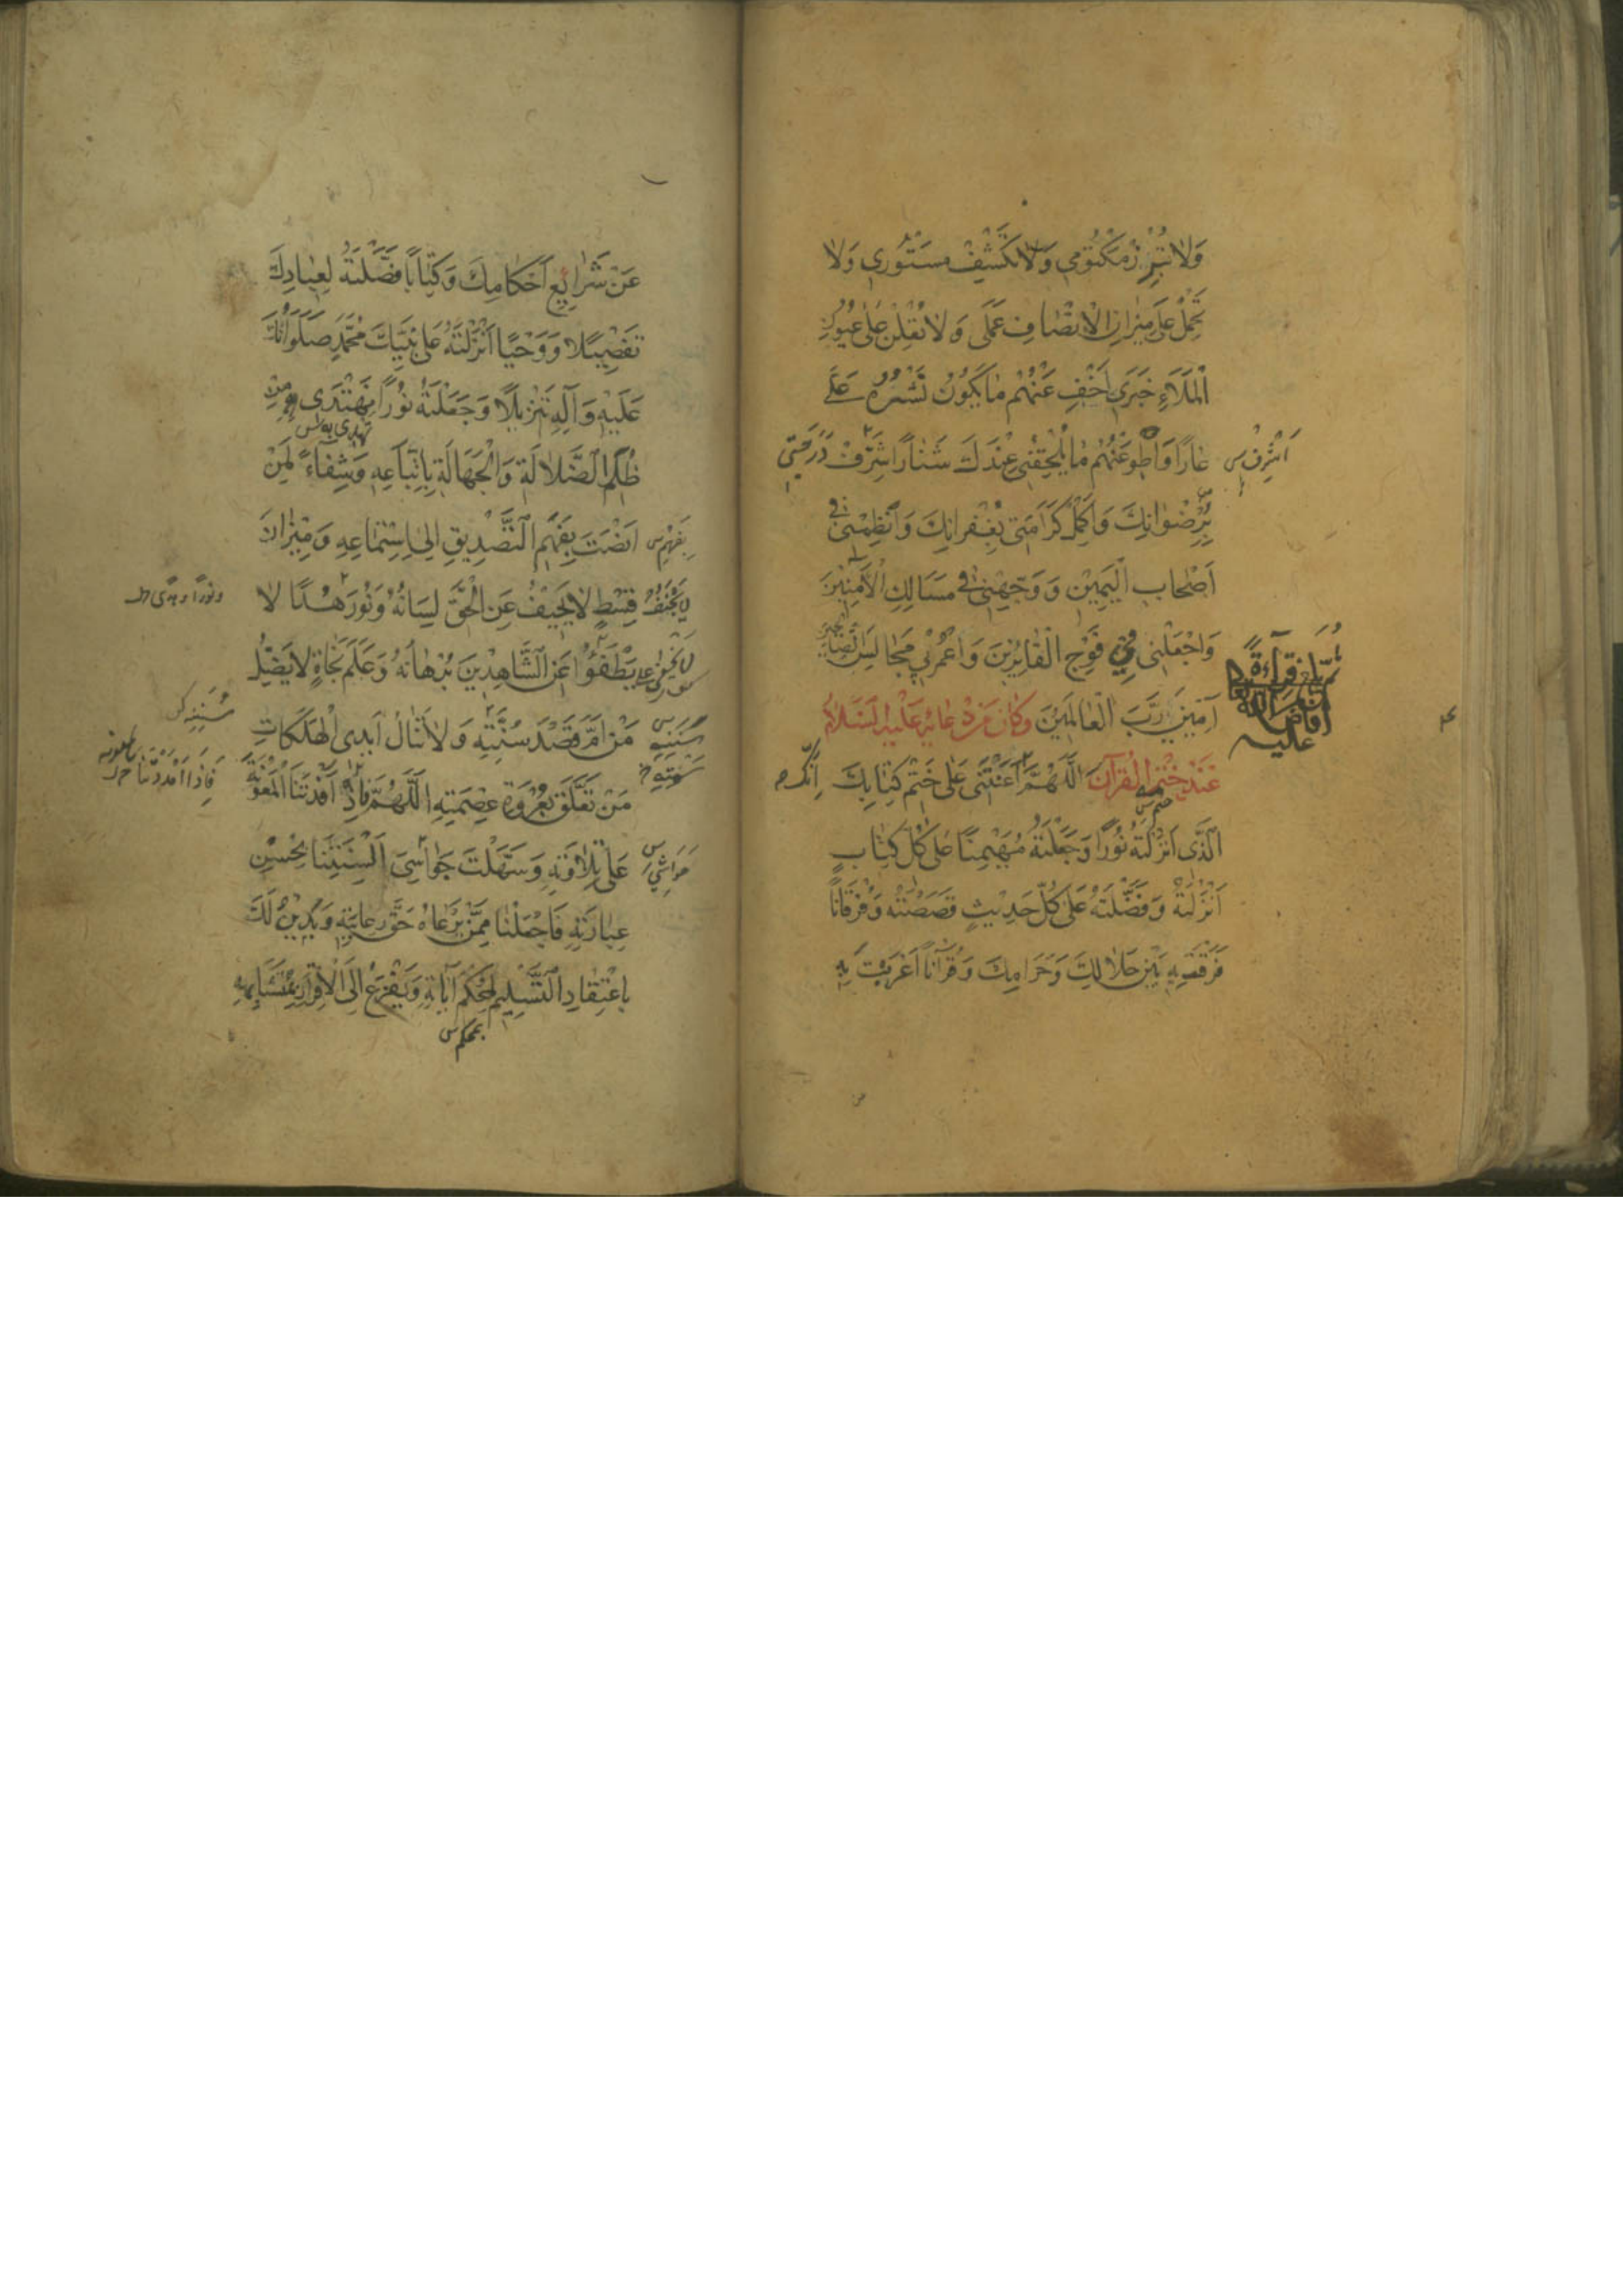 وَلَا تُبْرِزْ مَكْتُومِي وَلَا تَكْشِفْ مَسْتُورِي وَلَا
تَحْمِلْ عَلَى مِيزَانِ الْإِنْصَافِ عَمَلِي وَلَا تُعْلِنْ عَلَى عُيُونِ
الْمَلَاءِ خَبَرِي أَخْفِ عَنْهُمْ مَا يَكُونُ نَشْرُهُ عَلَيَّ
عَارًا وَاطْوِ عَنْهُمْ مَا يُلْحِقُنِي عِنْدَكَ شَنَارًا شَرِّفْ دَرَجَتِي
أَشْرِفْ س
بِرِضْوَانِكَ وَأَكْمِلْ كَرَامَتِي بِغُفْرَانِكَ وَانْظِمْنِي فِي
أَصْحَابِ الْيَمِينِ وَوَجِّهْنِي فِي مَسَالِكِ الْآمِنِينَ
وَاجْعَلْنِي فِي فَوْجِ الْفَائِزِينَ وَاعْمُرْ بِي مَجَالِسَ الصَّالِحِينَ
آمِينَ رَبَّ الْعَالَمِينَ وَكَانَ مِنْ دُعَائِهِ عَلَيْهِ السَّلَامُ
ثُمَّ بلغ قراءة
عليه
عِنْدَ خَتْمِ الْقُرْآنِ اللَّهُمَّ أَعَنْتَنِي عَلَى خَتْمِ كِتَابِكَ
إِنَّكَ
الَّذِي أَنْزَلْتَهُ نُورًا وَجَعَلْتَهُ مُهَيْمِنًا عَلَى كُلِّ كِتَابٍ
أَنْزَلْتَهُ وَفَضَّلْتَهُ عَلَى كُلِّ حَدِيثٍ قَصَصْتَهُ وَفُرْقَانًا
فَرَقْتَ بِهِ بَيْنَ حَلَالِكَ وَحَرَامِكَ وَقُرْآنًا أَعْرَبْتَ بِهِ
عَنْ شَرَائِعِ أَحْكَامِكَ وَكِتَابًا فَصَّلْتَهُ لِعِبَادِكَ
تَفْصِيلًا وَوَحْيًا أَنْزَلْتَهُ عَلَى نَبِيِّكَ مُحَمَّدٍ صَلَوَاتُكَ
عَلَيْهِ وَآلِهِ تَنْزِيلًا وَجَعَلْتَهُ نُورًا نَهْتَدِي مِنْ
نهتدي به س
ظُلَمِ الضَّلَالَةِ وَالْجَهَالَةِ بِاتِّبَاعِهِ وَشِفَاءً لِمَنْ
أَنْصَتَ بِفَهْمِ التَّصْدِيقِ إِلَى اسْتِمَاعِهِ وَمِيزَانَ
بِفَهْمٍ س
قِسْطٍ لَا يَحِيفُ عَنِ الْحَقِّ لِسَانُهُ وَنُورَ هُدًى لَا
ونورًا وهدًى
يُطْفَؤُ عَنِ الشَّاهِدِينَ بُرْهَانُهُ وَعَلَمَ نَجَاةٍ لَا يَضِلُّ
مَنْ أَمَّ قَصْدَ سُنَّتِهِ وَلَا تَنَالُ أَيْدِي الْهَلَكَاتِ
مَنْ تَعَلَّقَ بِعُرْوَةِ عِصْمَتِهِ اللَّهُمَّ فَإِذْ أَفَدْتَنَا الْمَعُونَةَ
فَإِذَا أَمْدَدْتَنَا
عَلَى تِلَاوَتِهِ وَسَهَّلْتَ جَوَاسِيَ أَلْسِنَتِنَا بِحُسْنِ
حَوَاشِيَ س
عِبَارَتِهِ فَاجْعَلْنَا مِمَّنْ يَرْعَاهُ حَقَّ رِعَايَتِهِ وَيَدِينُ لَكَ
بِاعْتِقَادِ التَّسْلِيمِ لِمُحْكَمِ آيَاتِهِ وَيَفْزَعُ إِلَى الْإِقْرَارِ بِمُتَشَابِهِهِ
بمحكم س